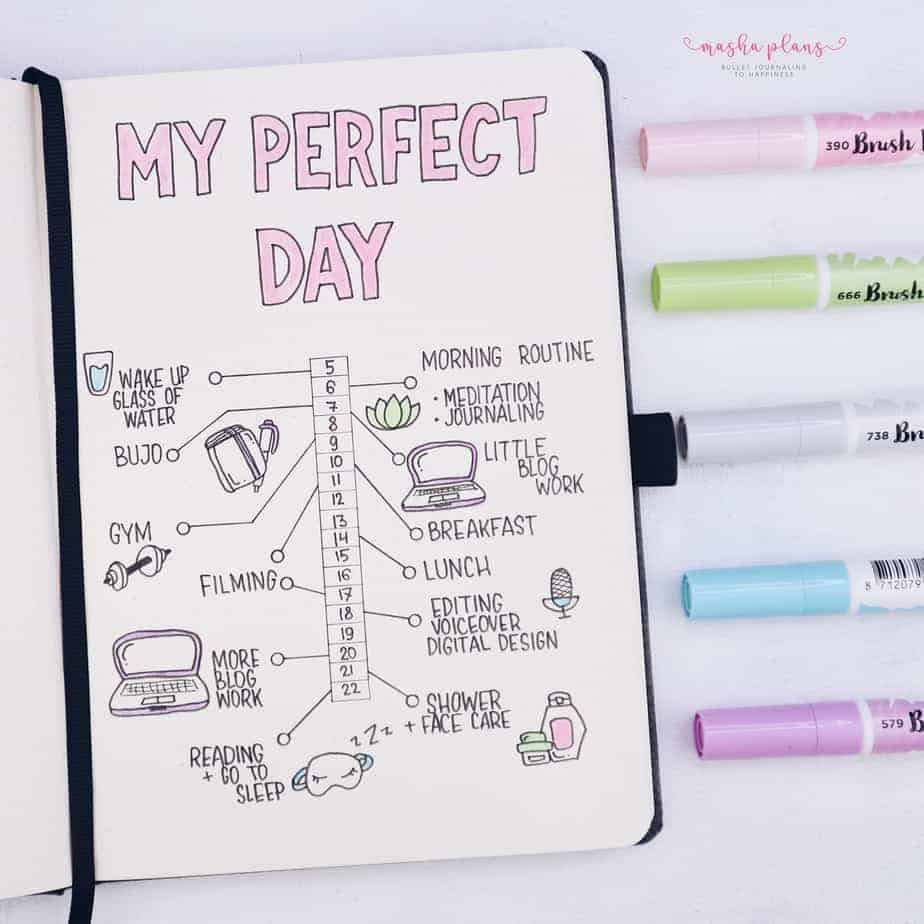 masha plans
BULLET JOURNALING
TO HAPPINESS
MY PERFECT
DAY
5
6
7
8
9
10
11
12
13
14
15
16
17
18
19
20
21
22
WAKE UP
GLASS OF
WATER
BUJO
GYM
FILMING
MORE
BLOG
WORK
READING
+ GO TO
SLEEP
zzz
MORNING ROUTINE
• MEDITATION
• JOURNALING
LITTLE
BLOG
WORK
BREAKFAST
LUNCH
EDITING
VOICEOVER
DIGITAL DESIGN
SHOWER
+ FACE CARE
390 Brush
666 Brush
738
8 712079
579